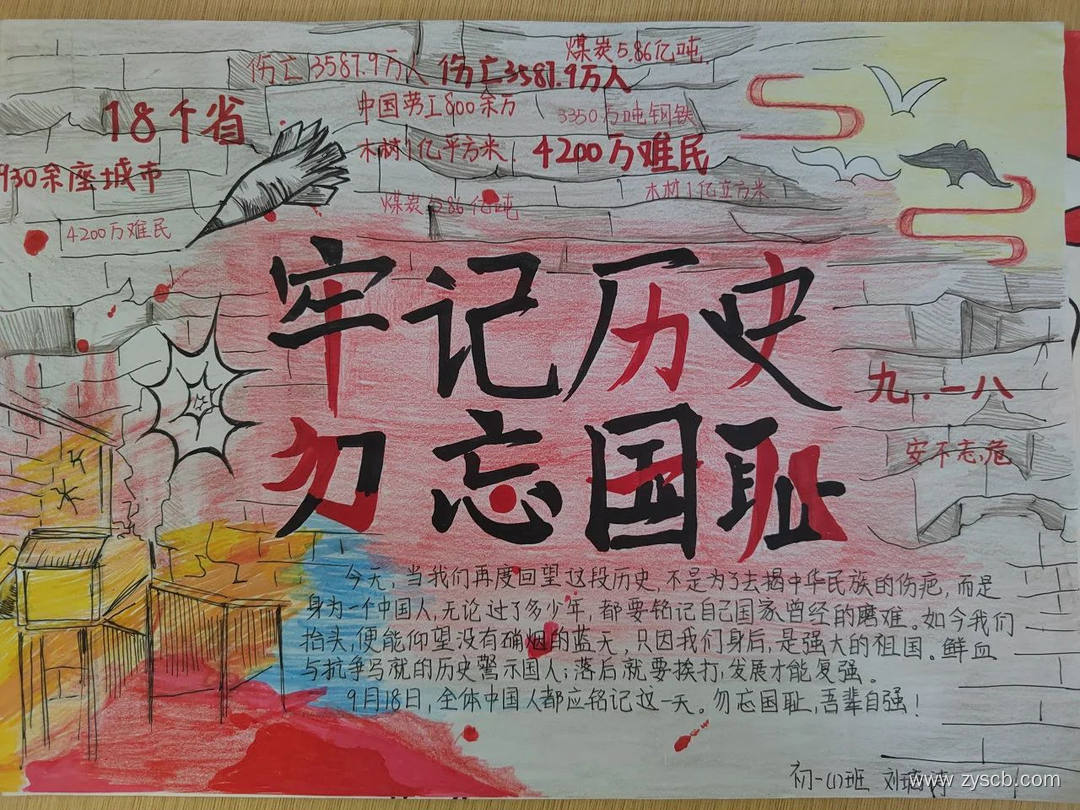 煤炭5.86亿吨
伤亡3587.9万人
伤亡3587.9万人
18个省
中国劳工800余万
3350万吨钢铁
木材1亿平方米
4200万难民
930余座城市
煤炭5.86亿吨
木材1亿立方米
4200万难民
牢记历史
九.一八
勿忘国耻
安不忘危
今天,当我们再度回望这段历史,不是为了去揭中华民族的伤疤,而是
身为一个中国人,无论过了多少年,都要铭记自己国家曾经的磨难。如今我们
抬头,便能仰望没有硝烟的蓝天,只因我们身后,是强大的祖国。鲜血
与抗争写就的历史警示国人:落后就要挨打,发展才能复强。
9月18日,全体中国人都应铭记这一天。勿忘国耻,吾辈自强!
初一(1)班 刘
www.zyscb.com